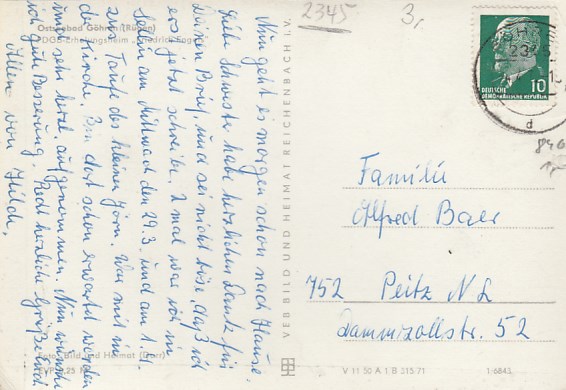 Ostseebad Göhren (Rügen)
FDGB-Erholungsheim "Friedrich Engels"
Nun geht es morgen schon nach Hause.
Liebe Schwester habe herzlichen Dank für
Deinen Brief, und sei nicht böse, daß wir
erst jetzt schreiben. 2 mal war ich in
am Mittwoch den 29.3. und am 1.4.
zur Taufe des kleinen Jörn. War mit in
der Kirche. Bin dort schon erwartet worden
und sehr herzl. aufgenommen. Nun wünsche
ich gute Besserung. Recht herzliche Grüße Euch
Allen von Hilde.
Foto: Bild und Heimat (Darr)
EVP 0,25 M
VEB BILD UND HEIMAT REICHENBACH I. V.
2345
3,
23
DEUTSCHE
DEMOKRATISCHE REPUBLIK
10
d
840
1,-
Familie
Alfred Baer
752 Peitz N L
Dammzollstr. 52
V 11 50 A 1 B 315/71
1/6843